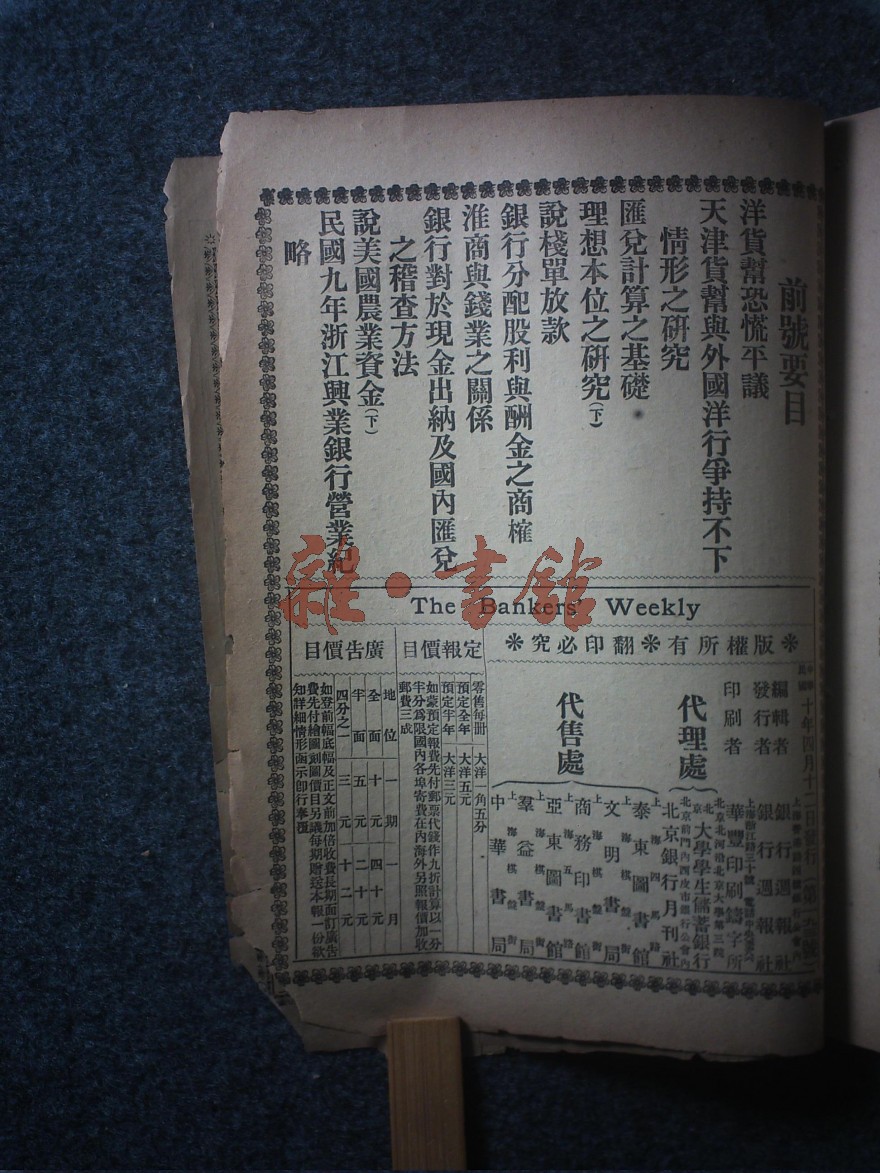 前號要目
洋貨幫恐慌平議
天津貨幫與外國洋行爭持不下
情形之研究
匯兌計算之基礎
理想本位之研究(下)
說棧單放款
銀行分配股利與酬金之商榷
淮商與錢業之關係
銀行對於現金出納及國內匯兌
之稽查方法
說美國農業資金(下)
民國九年浙江興業銀行營業紀
略
雜·書館
The Bankers' Weekly
版權所有 翻印必究
十年四月十二日發行
編輯者 銀行週報社
發行者 銀行週報社
印刷者 華豐印刷鑄字所
代理處
北京北河沿北京大學第三院
北京大學學生儲蓄銀行
北京前門內西皮市銀行公會內
北京銀行月刊社
代售處
上海四馬路
泰東圖書館
上海棋盤街
文明書局
上海棋盤街
商務印書館
上海五馬路
亞東圖書館
上海棋盤街
羣益書局
上海棋盤街
中華書局
定報價目
零售每冊 大洋一角五分
預定全年 大洋五元
預定半年 大洋三元
如蒙預定報費先付郵票代錢作九折計算以一分
半分爲限國內各埠寄費在內海外另照報價加收
郵費三成
廣告價目
地位 一期 一月
全面 十元 四十元
半面 五元 二十元
四分之一 三元 十二元
如登前幅底幅及正文前加倍收費長期面訂廣告
費先付繪圖刻圖價目另議每期贈送本報一份欲
知詳細情形函示卽行奉覆